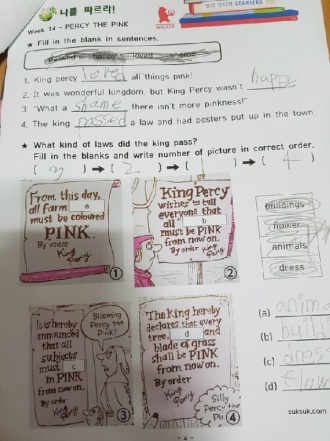 나를 따르라!
WALKER
STARTERS
Week 14 - PERCY THE PINK
★ Fill in the blank in sentences.
happy loved
1. King percy loved all things pink!
2. It was wonderful kingdom, but King Percy wasn't happy
3. "What a shame there isn't more pinkness!"
4. The king passed a law and had posters put up in the town.
★ What kind of laws did the king pass?
Fill in the blanks and write number of picture in correct order.
( 3 ) → ( 2 ) → ( 1 ) → ( 4 )
From this day,
all farm a
must be coloured
PINK.
By order
King Percy
①
King Percy
wishes to tell
everyone that
all b
must be PINK
from now on.
By order King Percy
②
buildings
flower
animals
dress
It is hereby
announced
that all
subjects
must c
in PINK
from now on.
By order
King Percy
Blooming
Percy the
Pink!
③
The king hereby
declares that every
tree, d and
blade of grass
shall be PINK
from now on.
By order
King Percy
Silly
Percy the
④
(a) anima
(b) build
(c) dress
(d) flow
suksuk.com